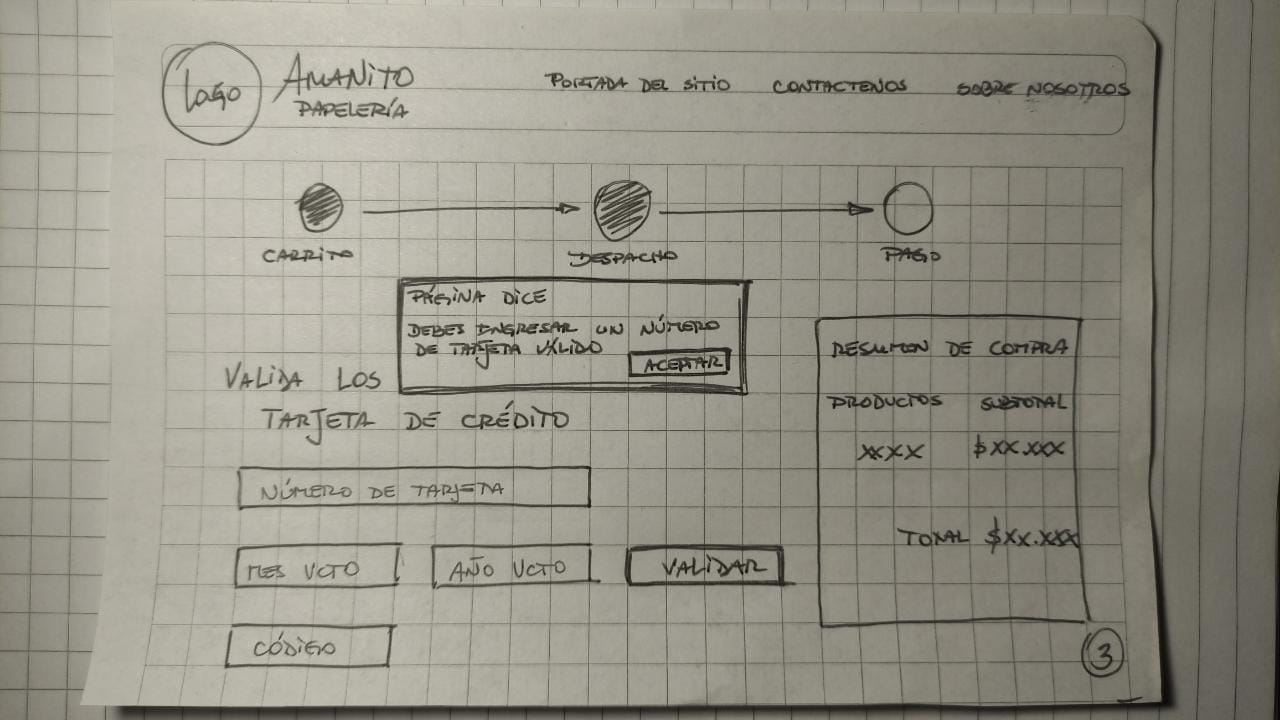 Logo
AMANITO
PAPELERÍA
PORTADA DEL SITIO CONTACTENOS SOBRE NOSOTROS
CARRITO DESPACHO PAGO
PÁGINA DICE
DEBES INGRESAR UN NÚMERO
DE TARJETA VÁLIDO
ACEPTAR
VALIDA LOS
TARJETA DE CRÉDITO
NÚMERO DE TARJETA
MES VCTO AÑO VCTO VALIDAR
CÓDIGO
RESUMEN DE COMPRA
PRODUCTOS SUBTOTAL
XXXX $XX.XXX
TOTAL $XX.XXX
3